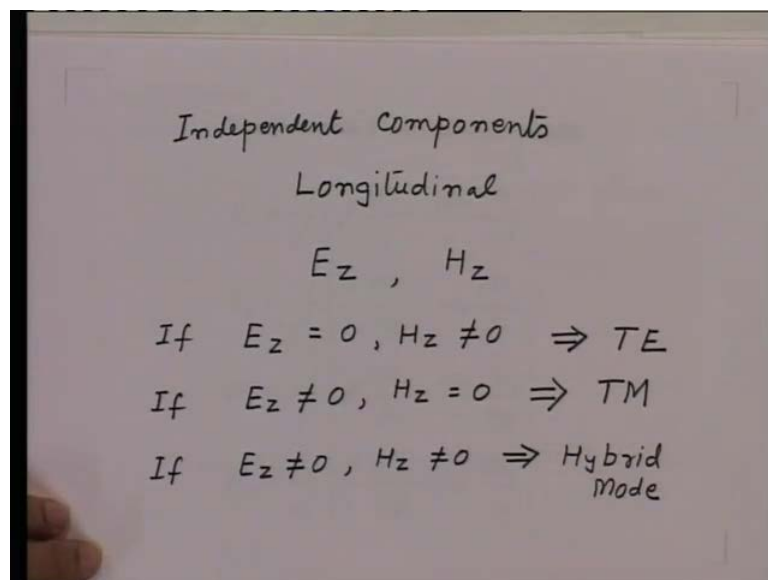 Independent Components
Longitudinal
Ez , Hz
If Ez = 0, Hz ≠ 0 ⇒ TE
If Ez ≠ 0, Hz = 0 ⇒ TM
If Ez ≠ 0, Hz ≠ 0 ⇒ Hybrid
Mode